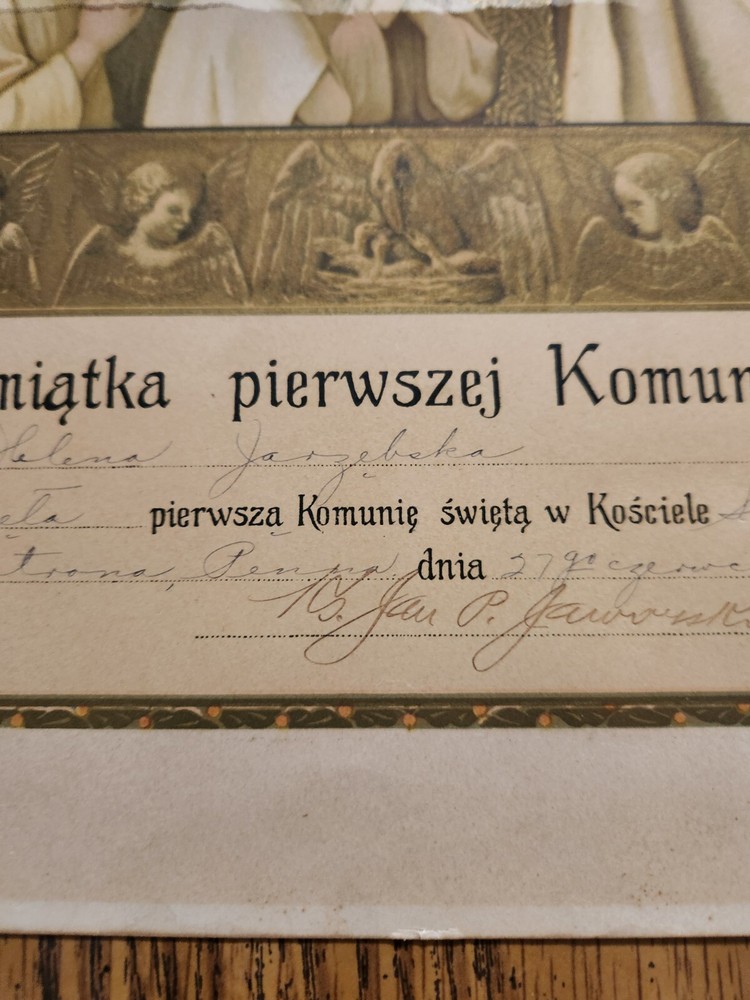 miątka pierwszej Komun
Helena Jarzębska
ęła pierwszą Komunię świętą w Kościele
trona, Penna dnia 27go czerwc
Ks. Jan P. Jaworsk